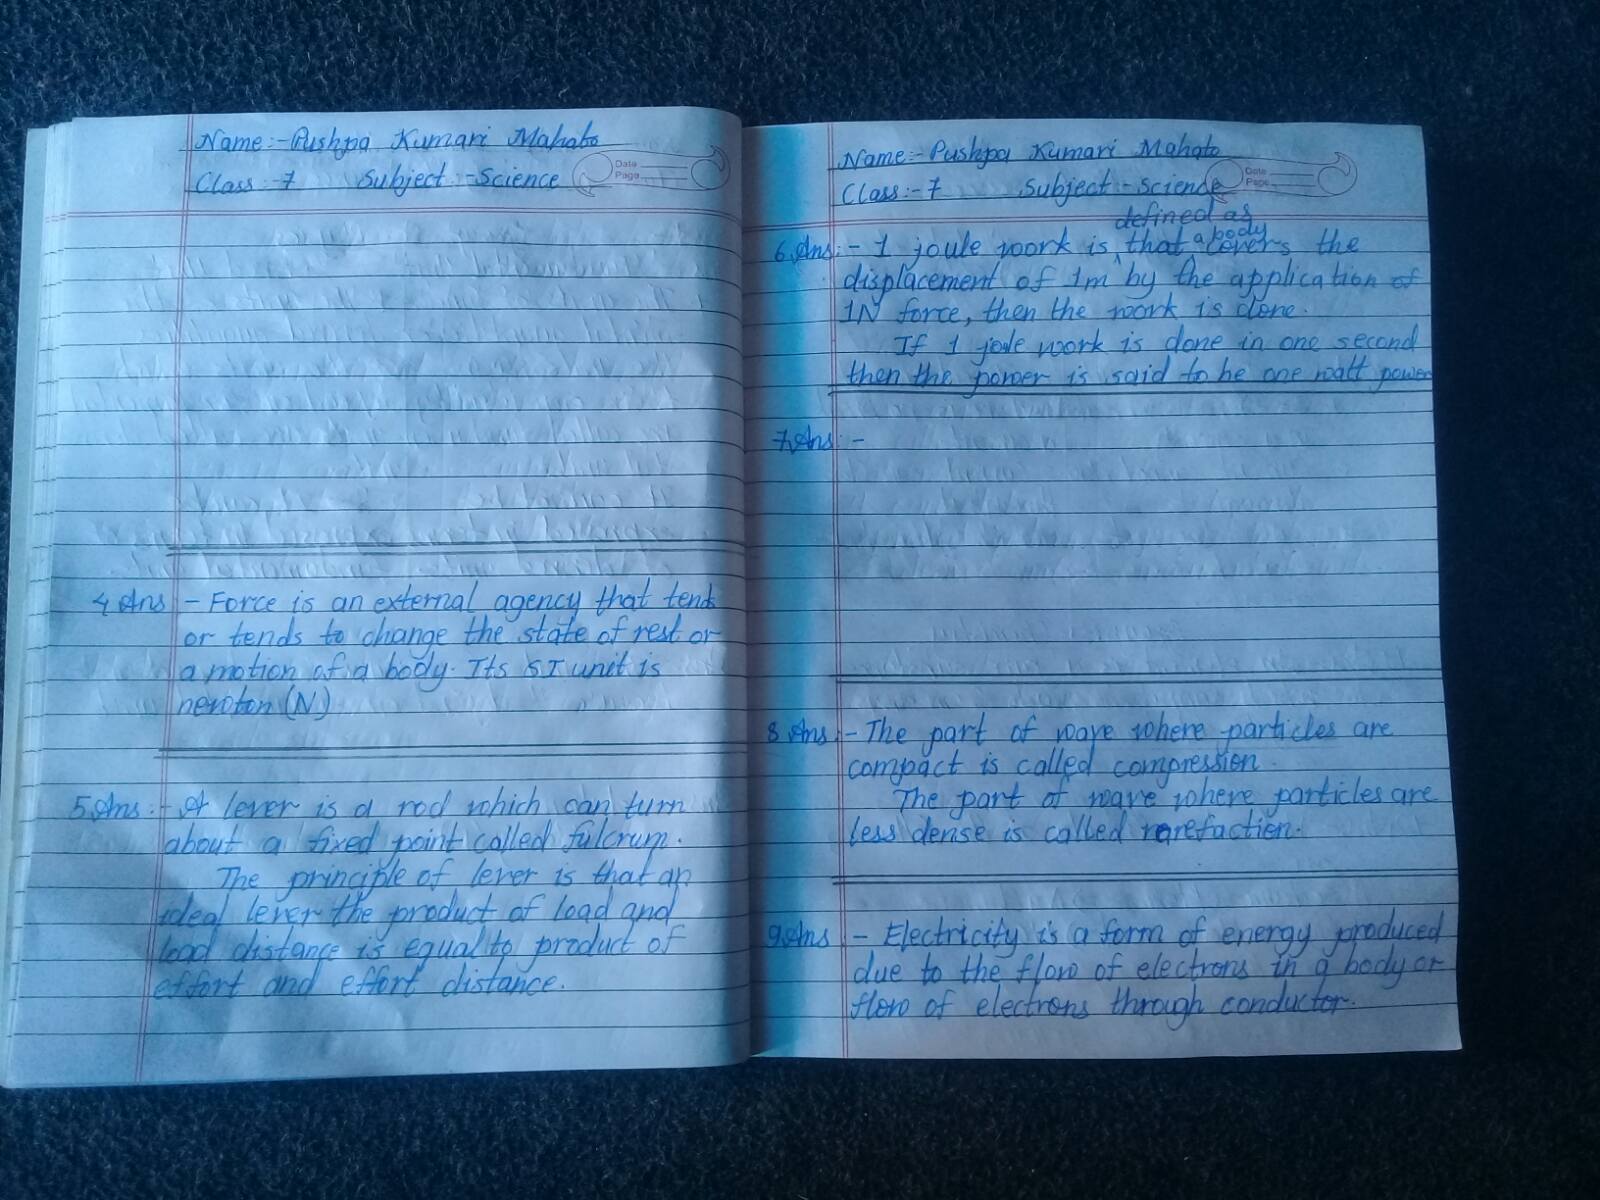 Name:- Pushpa Kumari Mahato
Class:-7 Subject:-Science
Date
Page
4 Ans :- Force is an external agency that tends
or tends to change the state of rest or
a motion of a body. Its SI unit is
newton (N)
5 Ans:- A lever is a rod which can turn
about a fixed point called fulcrum.
The principle of lever is that an
ideal lever the product of load and
load distance is equal to product of
effort and effort distance.
Name:- Pushpa Kumari Mahato
Class:-7 Subject-Science
Date
Page
defined as
a body
6 Ans:- 1 joule work is that covers the
displacement of 1m by the application of
1N force, then the work is done.
If 1 joule work is done in one second
then the power is said to be one watt power
7 Ans:-
8 Ans:- The part of wave where particles are
compact is called compression.
The part of wave where particles are
less dense is called rarefaction.
9 Ans :- Electricity is a form of energy produced
due to the flow of electrons in a body or
flow of electrons through conductor.